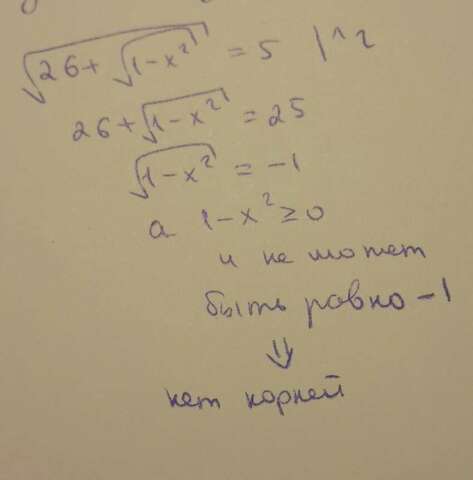 √(26+√(1-x²)) = 5 |^2
26+√(1-x²) = 25
√(1-x²) = -1
а 1-x² ≥ 0
и не может
быть равно -1
⇓
нет корней